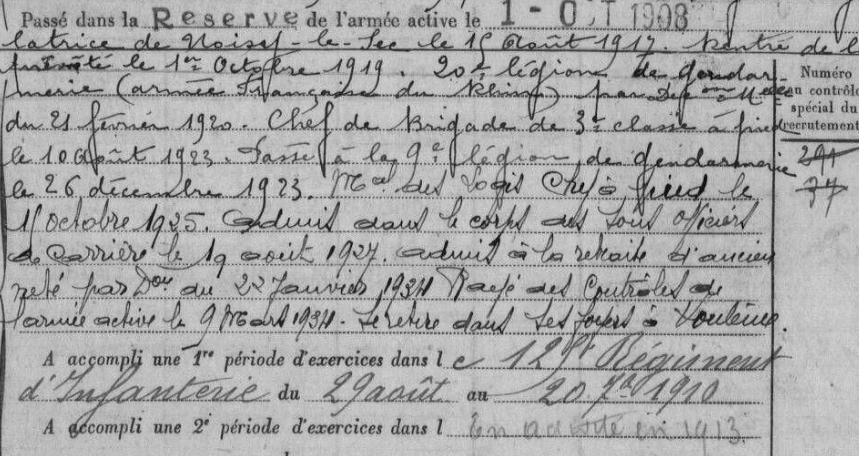 Passé dans la Reserve de l'armée active le 1 - OCT 1908
latrice de Noisy-le-Sec le 15 Août 1917. Rentré de l
le 1er Octobre 1919. 20e légion de gendar-
merie (armée Française du Rhin) par
du 21 février 1920. Chef de Brigade de 3e classe à pied
le 10 Août 1923. Passé à la 9e légion de gendarmerie
le 26 décembre 1923. Mal des Logis Chef à pied le
15 octobre 1925. Admis dans le corps des sous officiers
de carrière le 19 août 1927. Admis à la retraite d'ancien
neté par Don du 22 Janvier 1934 Rayé des Contrôles de
l'armée active le 9 Mars 1934. Se retire dans ses foyers à
Numéro
au contrôle
spécial du
recrutement
291
77
A accompli une 1re période d'exercices dans l e 125e Régiment
d'Infanterie du 29 août au 20 7bre 1910
A accompli une 2e période d'exercices dans l En en 1913.